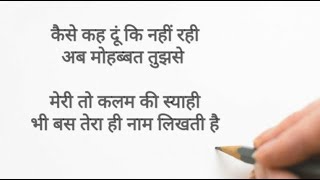 कैसे कह दूं कि नहीं रही
अब मोहब्बत तुझसे
मेरी तो कलम की स्याही
भी बस तेरा ही नाम लिखती है